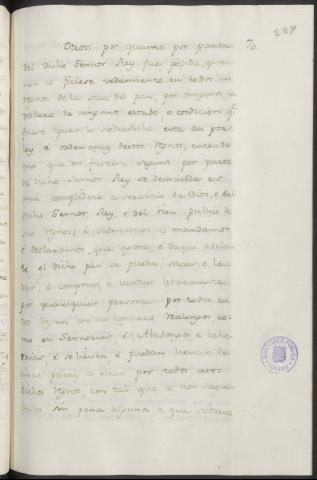 229
Otrosi por quanto por parte 70.
del dicho Sennor Rey fue pedido, que
non se ficiese vedamiento en todos sus
regnos de la saca del pan, por ninguna
de ningunt estado, o condicion q.e
fuese lo sobredicho esta asi por
ley, è ordenança destos regnos, entende
mo que se ficiese segunt por parte
de dicho Sennor Rey se demanda es
mui complidero a servicio de Dios, è del
dicho Sennor Rey, è del bien publico de
sus regnos, è ordenamos è mandamos
è declaramos, que agora, è daqui adelan
te el dicho pan se pueda sacar e lle
var, è comprar, è vender libremente
por qualesquier personas por todos es
tos regnos asi en lugares realengos co
mo en Sennorios, è Abadengos, è behe
trias è se lieven, è puedan llevar de
unas partes a otras por todos estos
dichos regnos, con tal que se non saquen
dellos sin pena alguna, e que sobre
BIBLIOTECA PUBLICA
TOLEDO